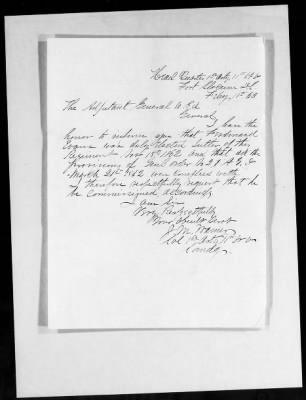 Head Quarters 1st Arty 11th Vt Vo
Fort Slocum D.C.
Feby 1st 63
The Adjutant General U.S.A
General
I have the
honor to inform you that Ferdinand
was duly elected Sutler of this
Regiment Nov 1862 and that all the
Provisions of Genl Order No 27 A.G.O.
March 21st 1862 were complied with
I therefore respectfully request that he
be Commissioned accordingly
I am Sir
Very Respectfully
Your Obedient Servt
J. M. Warner
Col 1st Arty 11th Vt Vo
Comdg